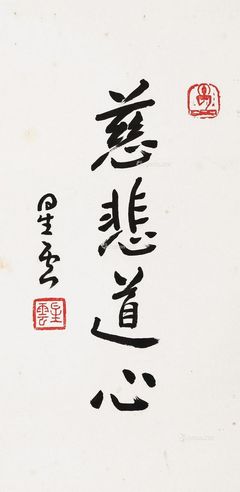 慈悲道心
星云
星雲